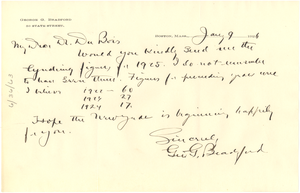 GEORGE G. BRADFORD
30 STATE STREET
BOSTON, MASS., Jan 9
My Dear Dr. Du Bois
Would you kindly send me the
lynching figures for 1925. I do not remember
to have seen them. Figures for preceding years are
I believe 1922 – 60
1923 27
1924 17
Hope the New Year is beginning happily
for you.
Sincerely
Geo. G. Bradford